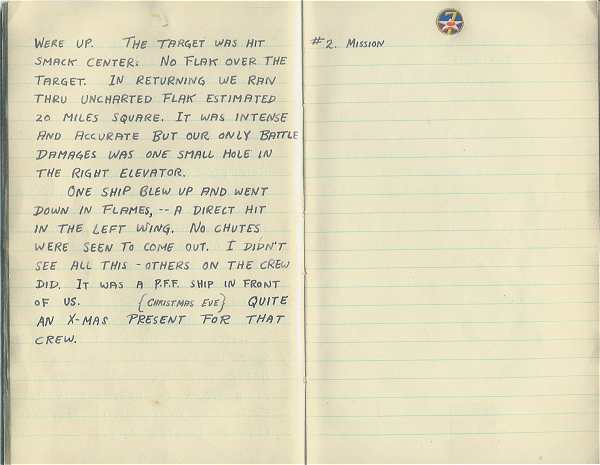 WERE UP. THE TARGET WAS HIT
SMACK CENTER. NO FLAK OVER THE
TARGET. IN RETURNING WE RAN
THRU UNCHARTED FLAK ESTIMATED
20 MILES SQUARE. IT WAS INTENSE
AND ACCURATE BUT OUR ONLY BATTLE
DAMAGES WAS ONE SMALL HOLE IN
THE RIGHT ELEVATOR.
ONE SHIP BLEW UP AND WENT
DOWN IN FLAMES, -- A DIRECT HIT
IN THE LEFT WING. NO CHUTES
WERE SEEN TO COME OUT. I DIDN'T
SEE ALL THIS - OTHERS ON THE CREW
DID. IT WAS A P.F.F. SHIP IN FRONT
OF US. {CHRISTMAS EVE} QUITE
AN X-MAS PRESENT FOR THAT
CREW.
7
#2. MISSION